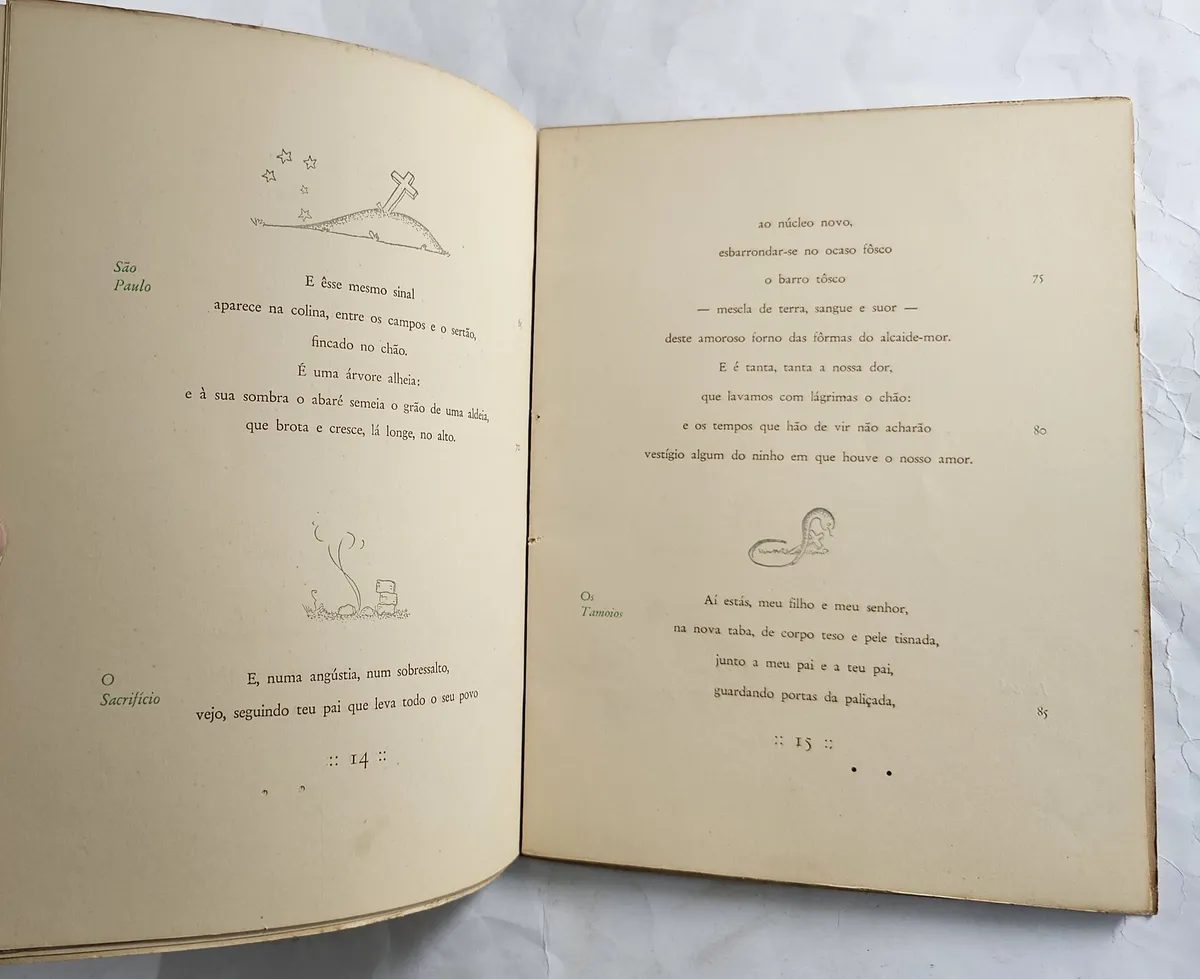 São
Paulo
E êsse mesmo sinal
aparece na colina, entre os campos e o sertão,
65
fincado no chão.
É uma árvore alheia:
e à sua sombra o abaré semeia o grão de uma aldeia,
que brota e cresce, lá longe, no alto.
70
O
Sacrifício
E, numa angústia, num sobressalto,
vejo, seguindo teu pai que leva todo o seu povo
:: 14 ::
ao núcleo novo,
esbarrondar-se no ocaso fôsco
o barro tôsco
75
— mescla de terra, sangue e suor —
deste amoroso forno das fôrmas do alcaide-mor.
E é tanta, tanta a nossa dor,
que lavamos com lágrimas o chão:
e os tempos que hão de vir não acharão
80
vestígio algum do ninho em que houve o nosso amor.
Os
Tamoios
Aí estás, meu filho e meu senhor,
na nova taba, de corpo teso e pele tisnada,
junto a meu pai e a teu pai,
guardando portas da paliçada,
85
:: 15 ::